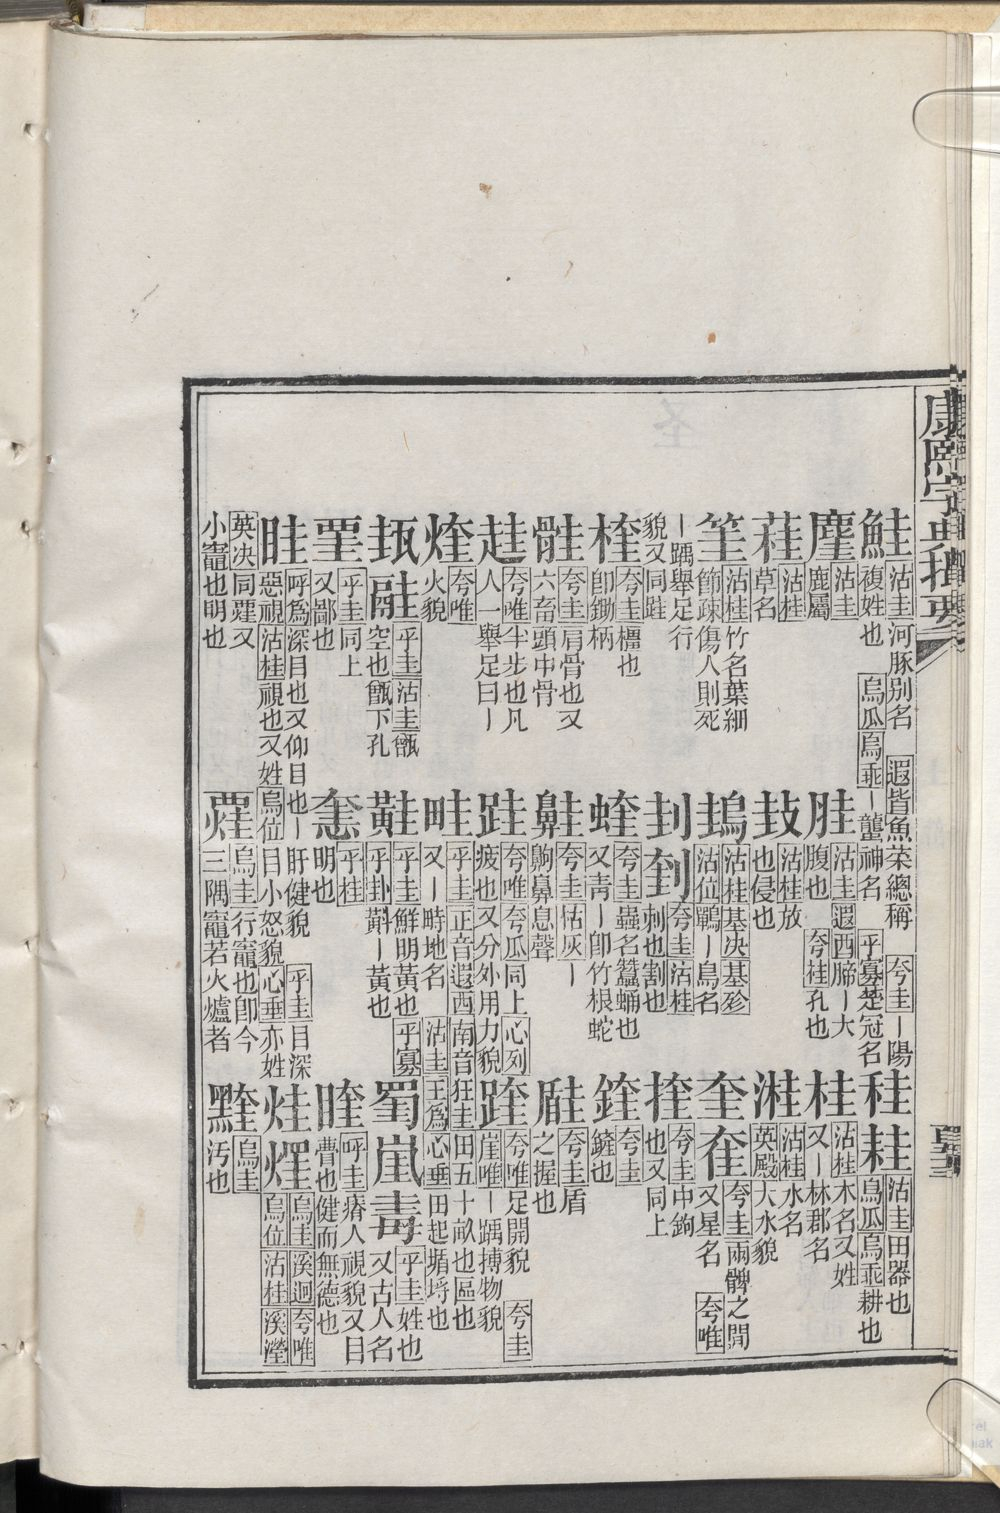 康熙字典撮要
鮭 沽圭河豚别名 遐皆魚菜總稱 夸圭丨陽
複姓也 烏瓜烏乖丨蠪神名 乎寡楚冠名
䴥 沽圭
鹿屬
蓕 沽桂
草名
筀 沽桂竹名葉細
節疎傷人則死
丨踽舉足行
貌又同跬
楏 夸圭橿也
卽鋤柄
骵 夸圭肩骨也又
六畜頭中骨
趌 夸唯半步也凡
人一舉足曰丨
煃 夸唯
火貌
乎圭沽圭甑
空也甑下孔
乎圭同上
又鄙也
眭 呼爲深目也又仰目也丨盱健貌 乎圭目深
惡視沽桂視也又姓烏位目小怒貌心垂亦姓
英决同䙆又
小竈也明也
胿 沽圭遐西腣丨大
腹也 夸桂孔也
㩻 沽桂放
也侵也
沽桂基决基殄
沽位鷤丨鳥名
刲 夸圭沽桂
刺也割也
蝰 夸圭蟲名蠶蛹也
又靑丨卽竹根蛇
夸圭怙灰丨
齁鼻息聲
跬 夸唯夸瓜同上心列
疲也又分外用力貌
畦 乎圭正音遐西南音
又丨畤地名 沽圭
黊 乎圭鮮明黃也乎寡
乎卦黊丨黃也
乎桂
明也
烏圭行竈也卽今
三隅竈若火爐者
䅅 耒圭 沽圭田器也
烏瓜烏乖耕也
桂 沽桂木名又姓
又丨林郡名
溎 沽桂水名
英殿大水貌
奎 夸圭兩髀之間
又星名 夸唯
挂 夸圭中鉤
也又同上
鍷 夸圭
鏟也
夸圭盾
之握也
蹅 夸唯足開貌 夸圭
崖唯丨踽搏物貌
狂圭田五十畝也區也
王爲心垂田起堳埒也
乎圭姓也
又古人名
暌 呼圭瘠人視貌又目
瞢也健而無德也
烓 烏圭溪迥夸唯
烏位沽桂溪瀅
烏圭
汚也